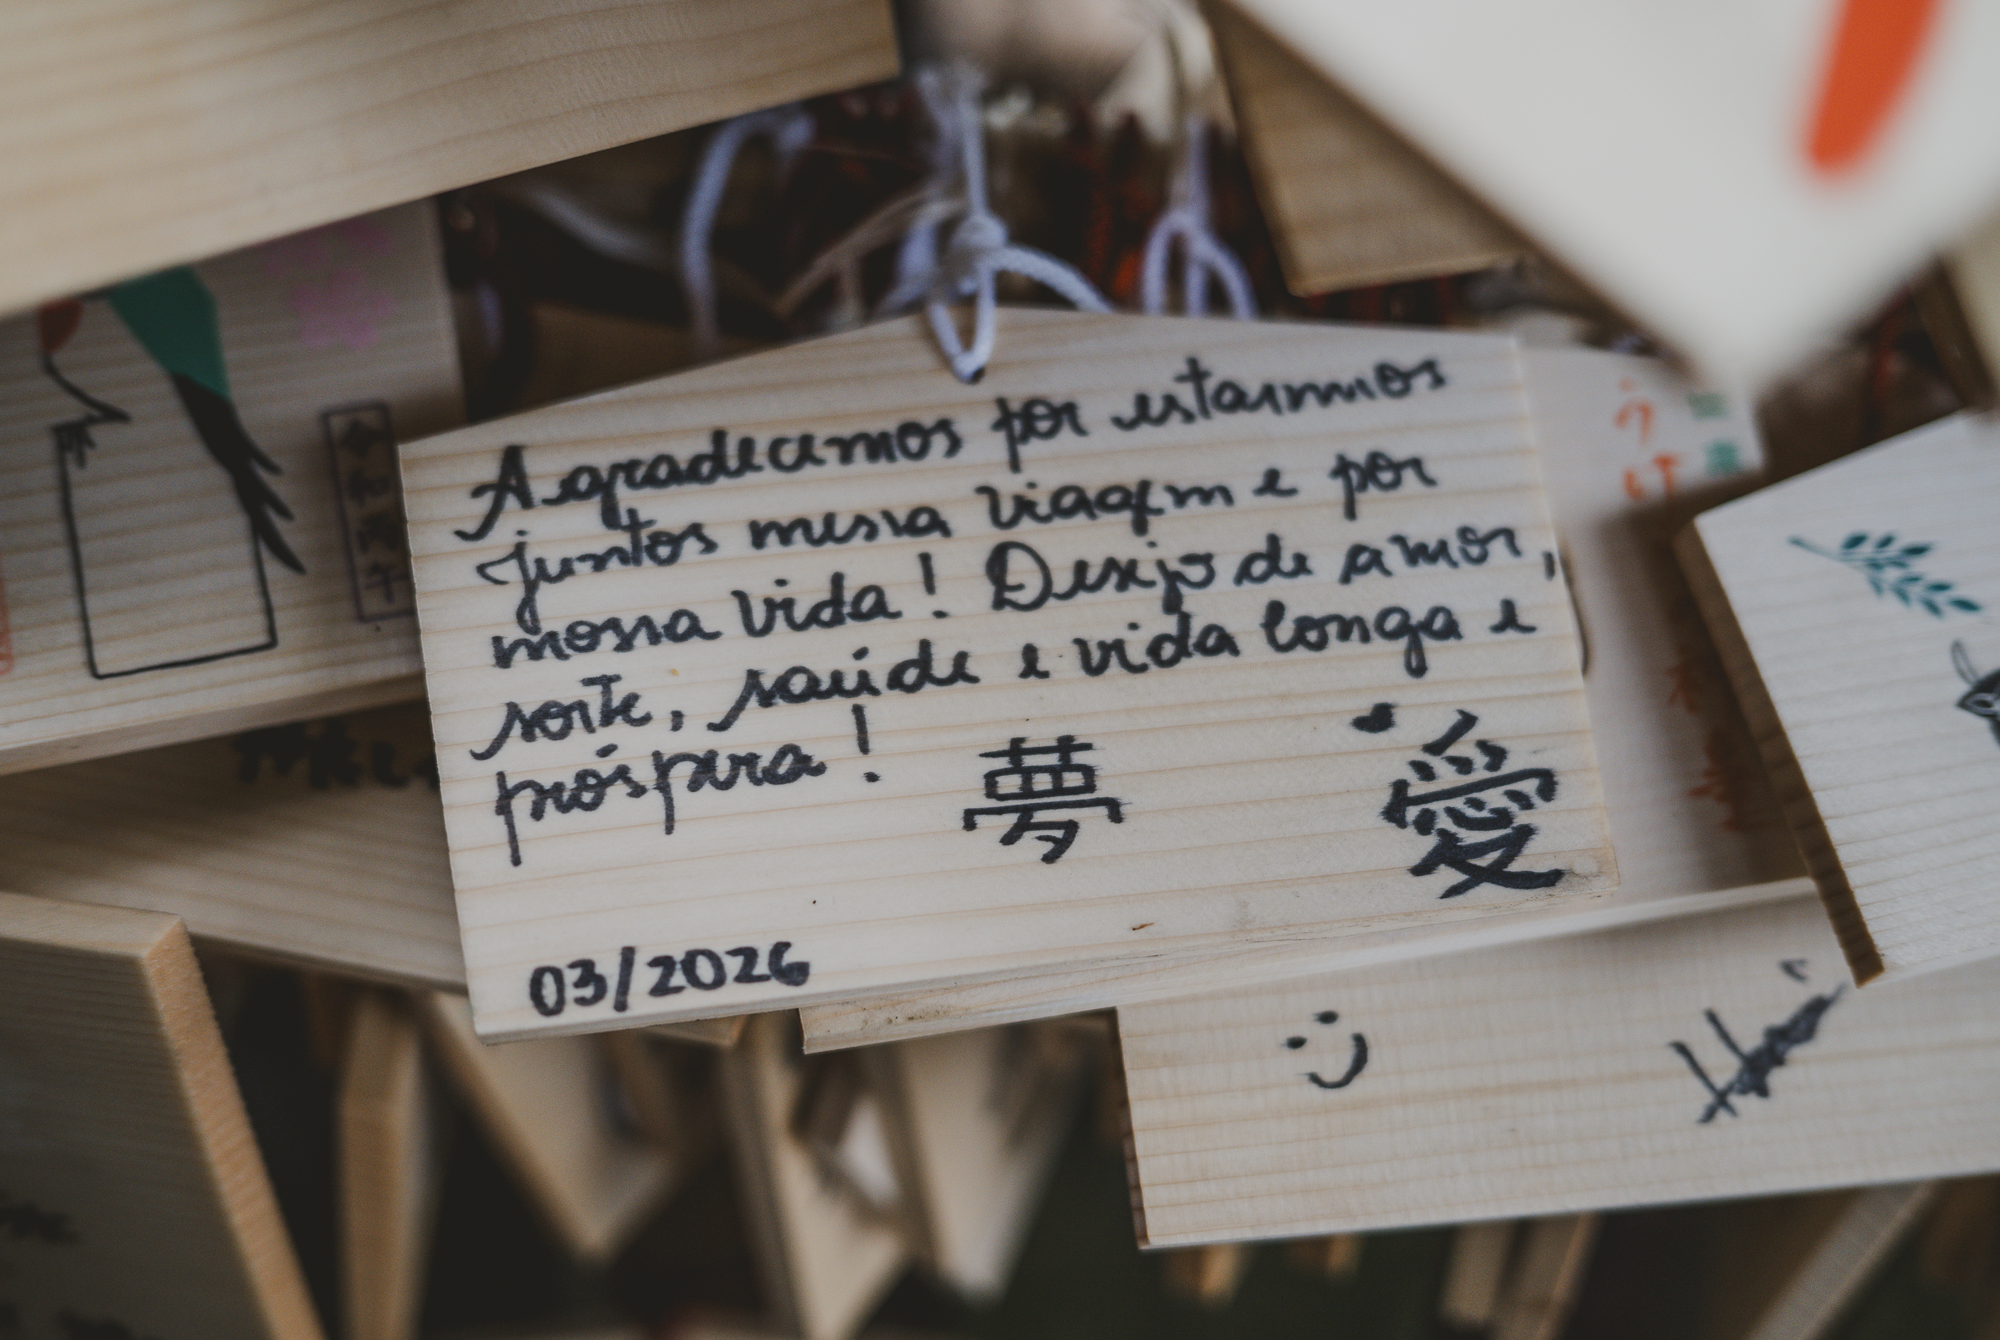 Agradecemos por estarmos
juntos nessa viagem e por
nossa vida! Desejo de amor,
sorte, saúde e vida longa e
próspera!
夢 愛
03/2026
令和丙午